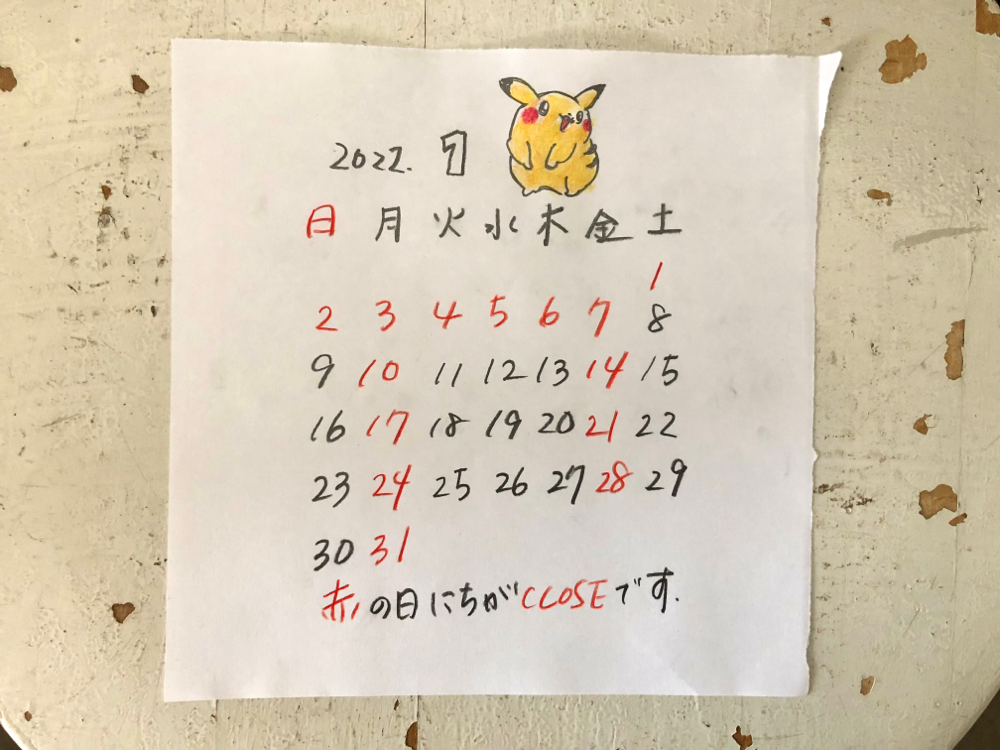 2022. 1
日 月 火 水 木 金 土
1
2 3 4 5 6 7 8
9 10 11 12 13 14 15
16 17 18 19 20 21 22
23 24 25 26 27 28 29
30 31
赤の日にちがCLOSEです.